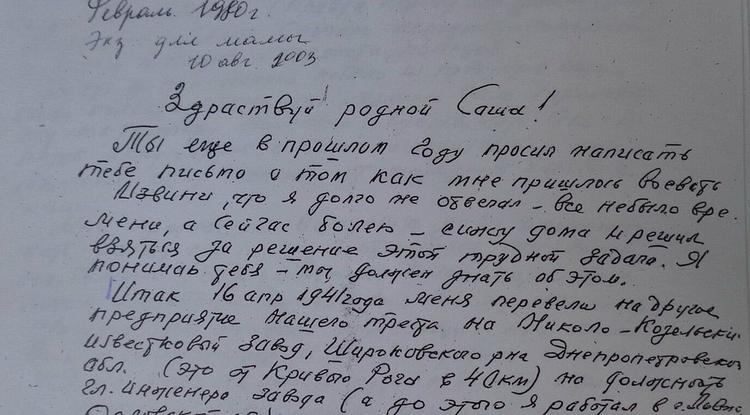 Февраль 1980г.
Экз для мамы
10 авг 2003
Здраствуй родной Саша!
Ты еще в прошлом году просил написать
тебе письмо о том как мне пришлось воевать
Извини, что я долго не отвечал – все небыло вре-
мени, а сейчас болею – сижу дома и решил
взяться за решение этой трудной задачи. Я
понимаю тебя – ты должен знать об этом.
Итак 16 апр 1941 года меня перевели на другое
предприятие нашего треста на Николо-Козельский
известковый завод, Широковского р-на Днепропетровской
обл. (это от Кривого Рога в 40км) на должность
гл. инженера завода (а до этого я работал в г.